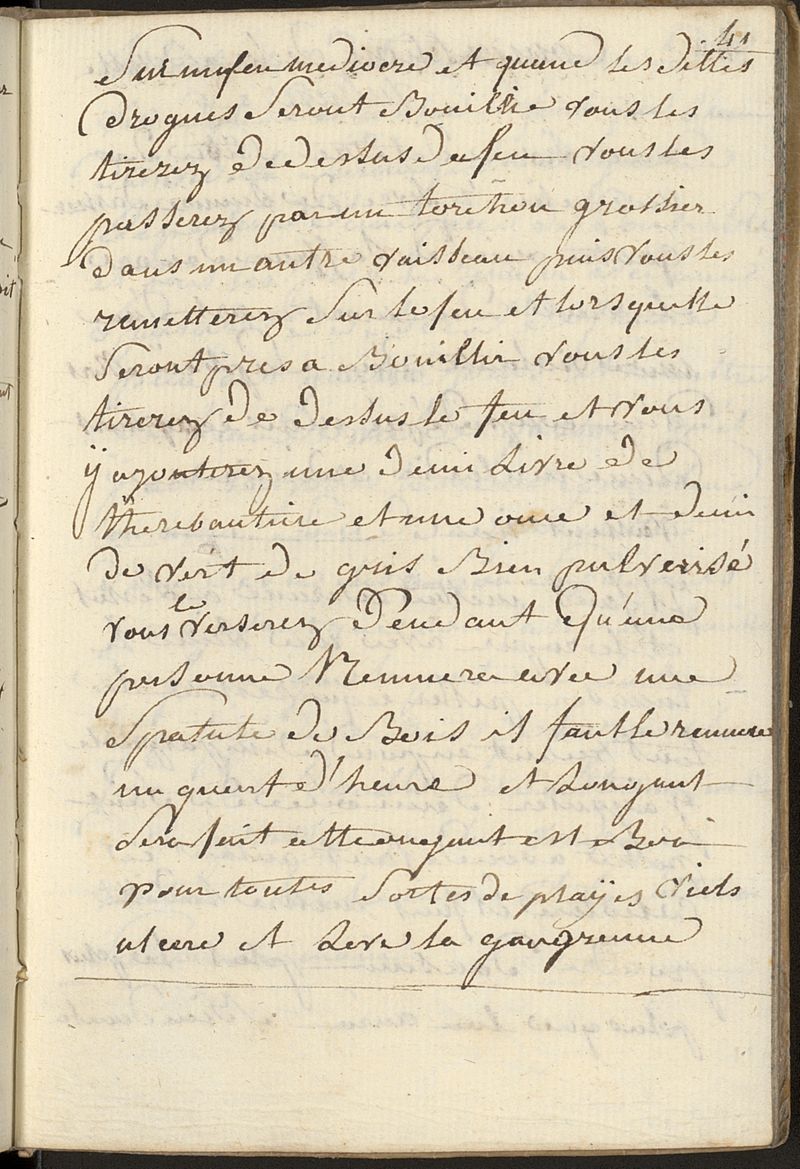 41
Sur un feu mediocre et quand les dittes
drogues Seront Bouillie vous les
tirerez de dessus du feu vous les
passerez par un torchon grossier
dans un autre vaisseau puis vous les
remetterez Sur le feu et lors quelle
Seront pres a Bouillir vous les
tirerez de dessus le feu et vous
ÿ ajouterez une demi Livre de
therebantine et une once et demi
de vert de gris Bien pulverisé
vous le verserez Pendant Qu'une
personne Remuera avec une
Spatule de Bois il faut le remuere
un quart d'heure et Longant
Sera fait cette ongant est Bon
pour toutes Sortes de playës viels
ulcere et Leve la gangrenne